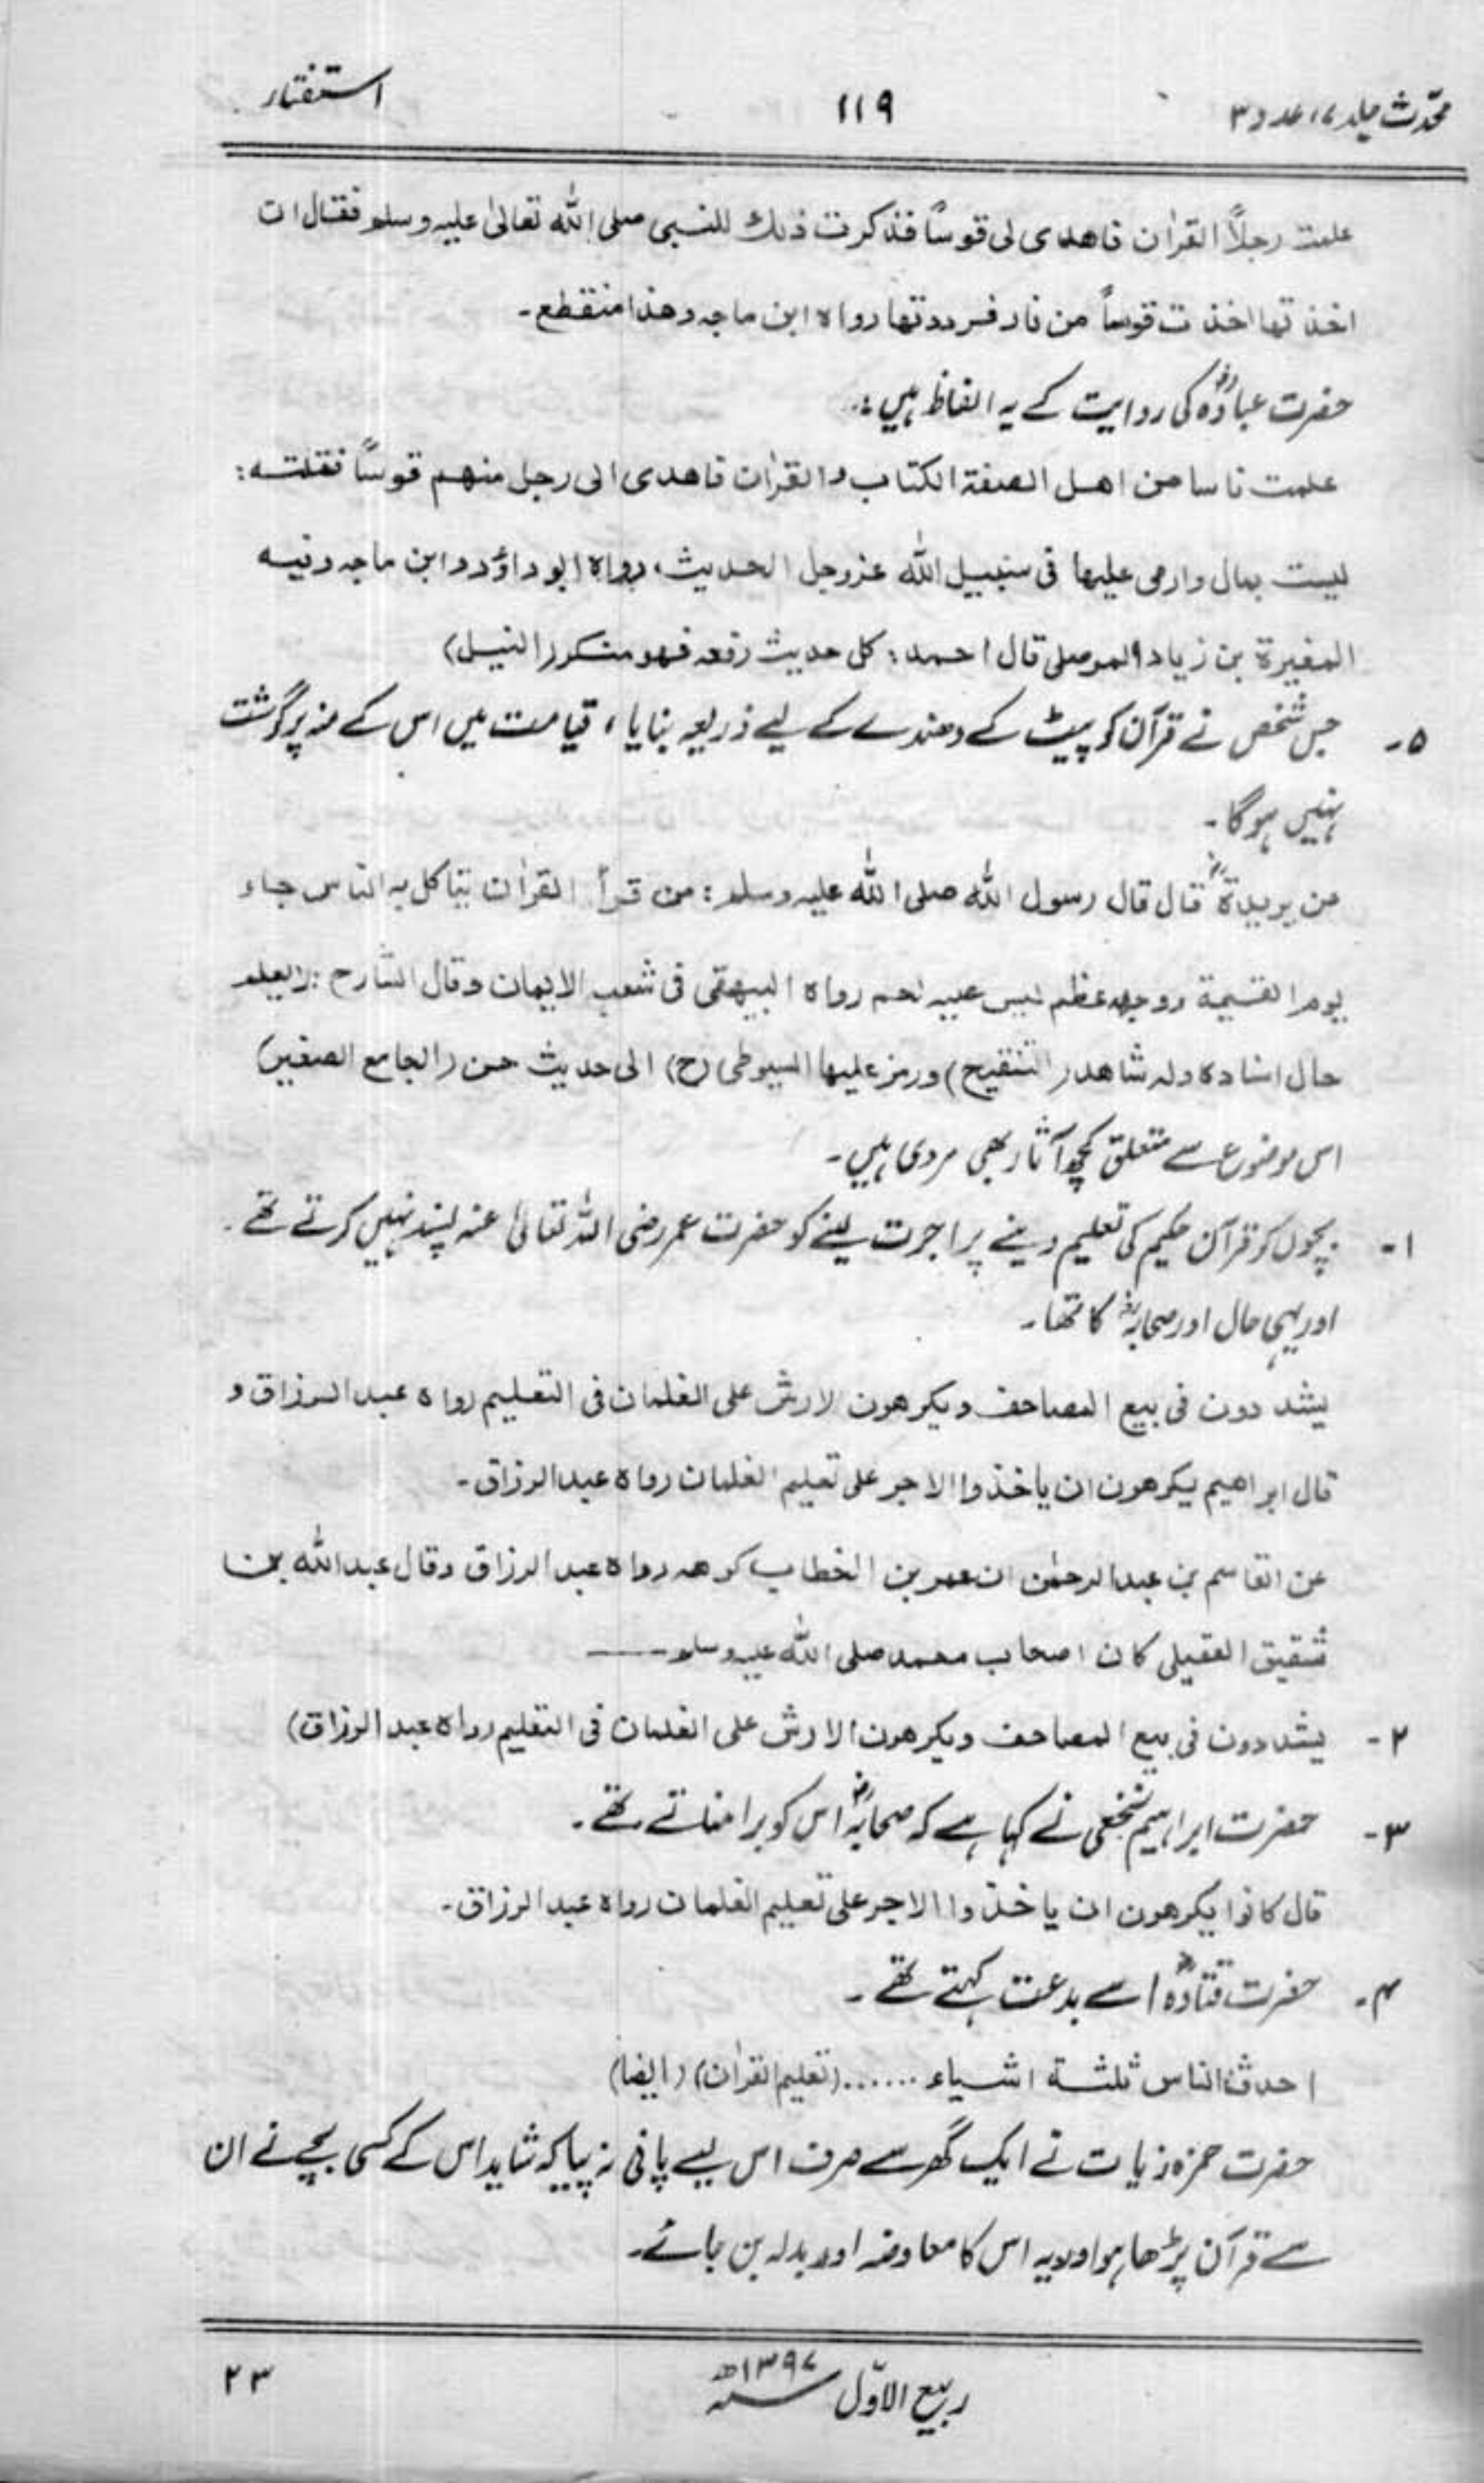 محدّث جلد ۷، عدد ۳
۱۱۹
استفتار
علمت رجلاً القرآن فاهدى لى قوسًا فذكرت ذلك للنبى صلى الله تعالىٰ عليه وسلم فقال ان
اخذتها اخذت قوساً من نار فرددتها رواه ابن ماجه وهذا منقطع۔
حضرت عبادہؓ کی روایت کے یہ الفاظ ہیں:۔
علمت ناسا من اهل الصفة الكتاب والقرٰان فاهدى الى رجل منهم قوسًا فقلت:
ليست بمال وارمى عليها فى سبيل الله عزوجل الحديث، رواه ابوداؤد وابن ماجه وفيه
المغيرة بن زياد الموصلى قال احمد: كل حديث رفعه فهو منكر (النيل)
۵۔ جس شخص نے قرآن کو پیٹ کے دھندے کے لیے ذریعہ بنایا، قیامت میں اس کے منہ پر گوشت
نہیں ہوگا۔
عن بريدةؓ قال قال رسول الله صلى الله عليه وسلم: من قرأ القرٰان يتاكل به الناس جاء
يوم القيمة ووجهه عظم ليس عليه لحم رواه البيهقى فى شعب الايمان وقال الشارح: لايعلم
حال اسناده وله شاهد (التنقيح) ورمز عليها السيوطى (ح) الى حديث حسن (الجامع الصغير)
اس موضوع سے متعلق کچھ آثار بھی مروی ہیں۔
۱۔ بچوں کو قرآن حکیم کی تعلیم دینے پر اجرت لینے کو حضرت عمر رضی اللہ تعالیٰ عنہ پسند نہیں کرتے تھے۔
اور یہی حال اور صحابہؓ کا تھا۔
يشددون فى بيع المصاحف ويكرهون الارش على الغلمان فى التعليم رواه عبد الرزاق و
قال ابراهيم يكرهون ان ياخذوا الاجر على تعليم الغلمان رواه عبد الرزاق۔
عن القاسم بن عبد الرحمٰن ان عمر بن الخطاب كرهه رواه عبد الرزاق وقال عبد الله بن
شقيق العقيلى كان اصحاب محمد صلى الله عليه وسلم ——
۲۔ يشددون فى بيع المصاحف ويكرهون الارش على الغلمان فى التعليم رواه عبد الرزاق)
۳۔ حضرت ابراہیم نخعی نے کہا ہے کہ صحابہؓ اس کو برا مناتے تھے۔
قال كانوا يكرهون ان ياخذوا الاجر على تعليم الغلمان رواه عبد الرزاق۔
۴۔ حضرت قتادہؒ اسے بدعت کہتے تھے۔
احدث الناس ثلثة اشياء ...... (تعليم القرٰان) (ايضا)
حضرت حمزہ زیات نے ایک گھر سے صرف اس لیے پانی نہ پیا کہ شاید اس کے کسی بچے نے ان
سے قرآن پڑھا ہو اور یہ اس کا معاوضہ اور بدلہ بن جائے۔
ربیع الاوّل ۱۳۹۷ھ
۲۳